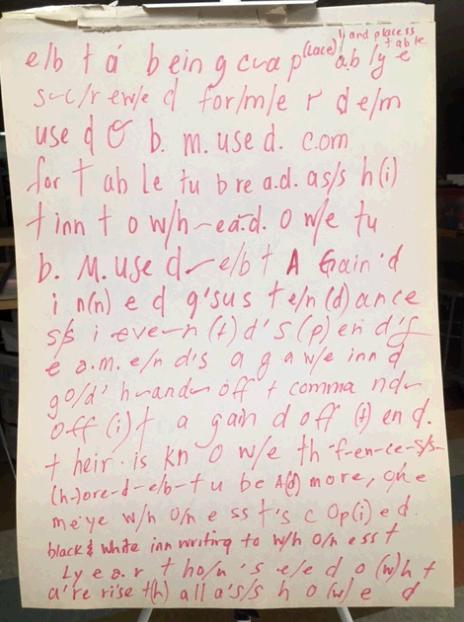 l) and place is
t able
e/b t á being cua p(lace) ab ly e
s-c/r ew/e d for/m/e r d e/m
use d & b. m. use d. com
for t ab le tu b re a.d. as/s h(i)
t inn t o w/h-ea.d. o w/e tu
b. M. use d-e/b t A Gain'd
i n(n) e d g'sus t e/n (d) ance
s/s i ever-n (t) d's (p) en d's
e a.m. e/n d's a g a w/e inn d
go/d' h-and- off t comma nd-
off (i) t a gain d off (t) en d.
t heir is kn o w/e th-f-en-ce-s/s-
(h-)ore-d-e/b-t u be A(d) more, one
me'ye w/h o/n e ss t's c op(i) ed.
black & white inn writing to w/h o/n ess t
Ly e a. r t ho/n 's e/e d o (w) h t
a're rise t(h) all a's/s h o (w) e d